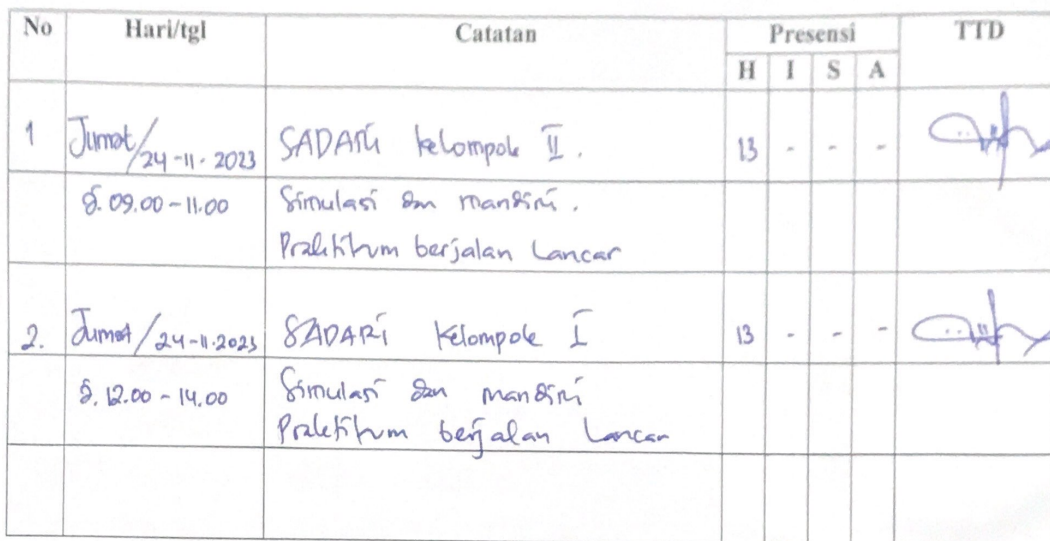 No Hari/tgl Catatan Presensi TTD
H I S A
1 Jumat/24-11-2023 SADARI kelompok II. 13 - - -
J. 09.00-11.00 Simulasi dan mandiri.
Praktikum berjalan lancar
2. Jumat/24-11-2023 SADARI Kelompok I 13 - - -
J. 12.00 - 14.00 Simulasi dan mandiri
Praktikum berjalan lancar